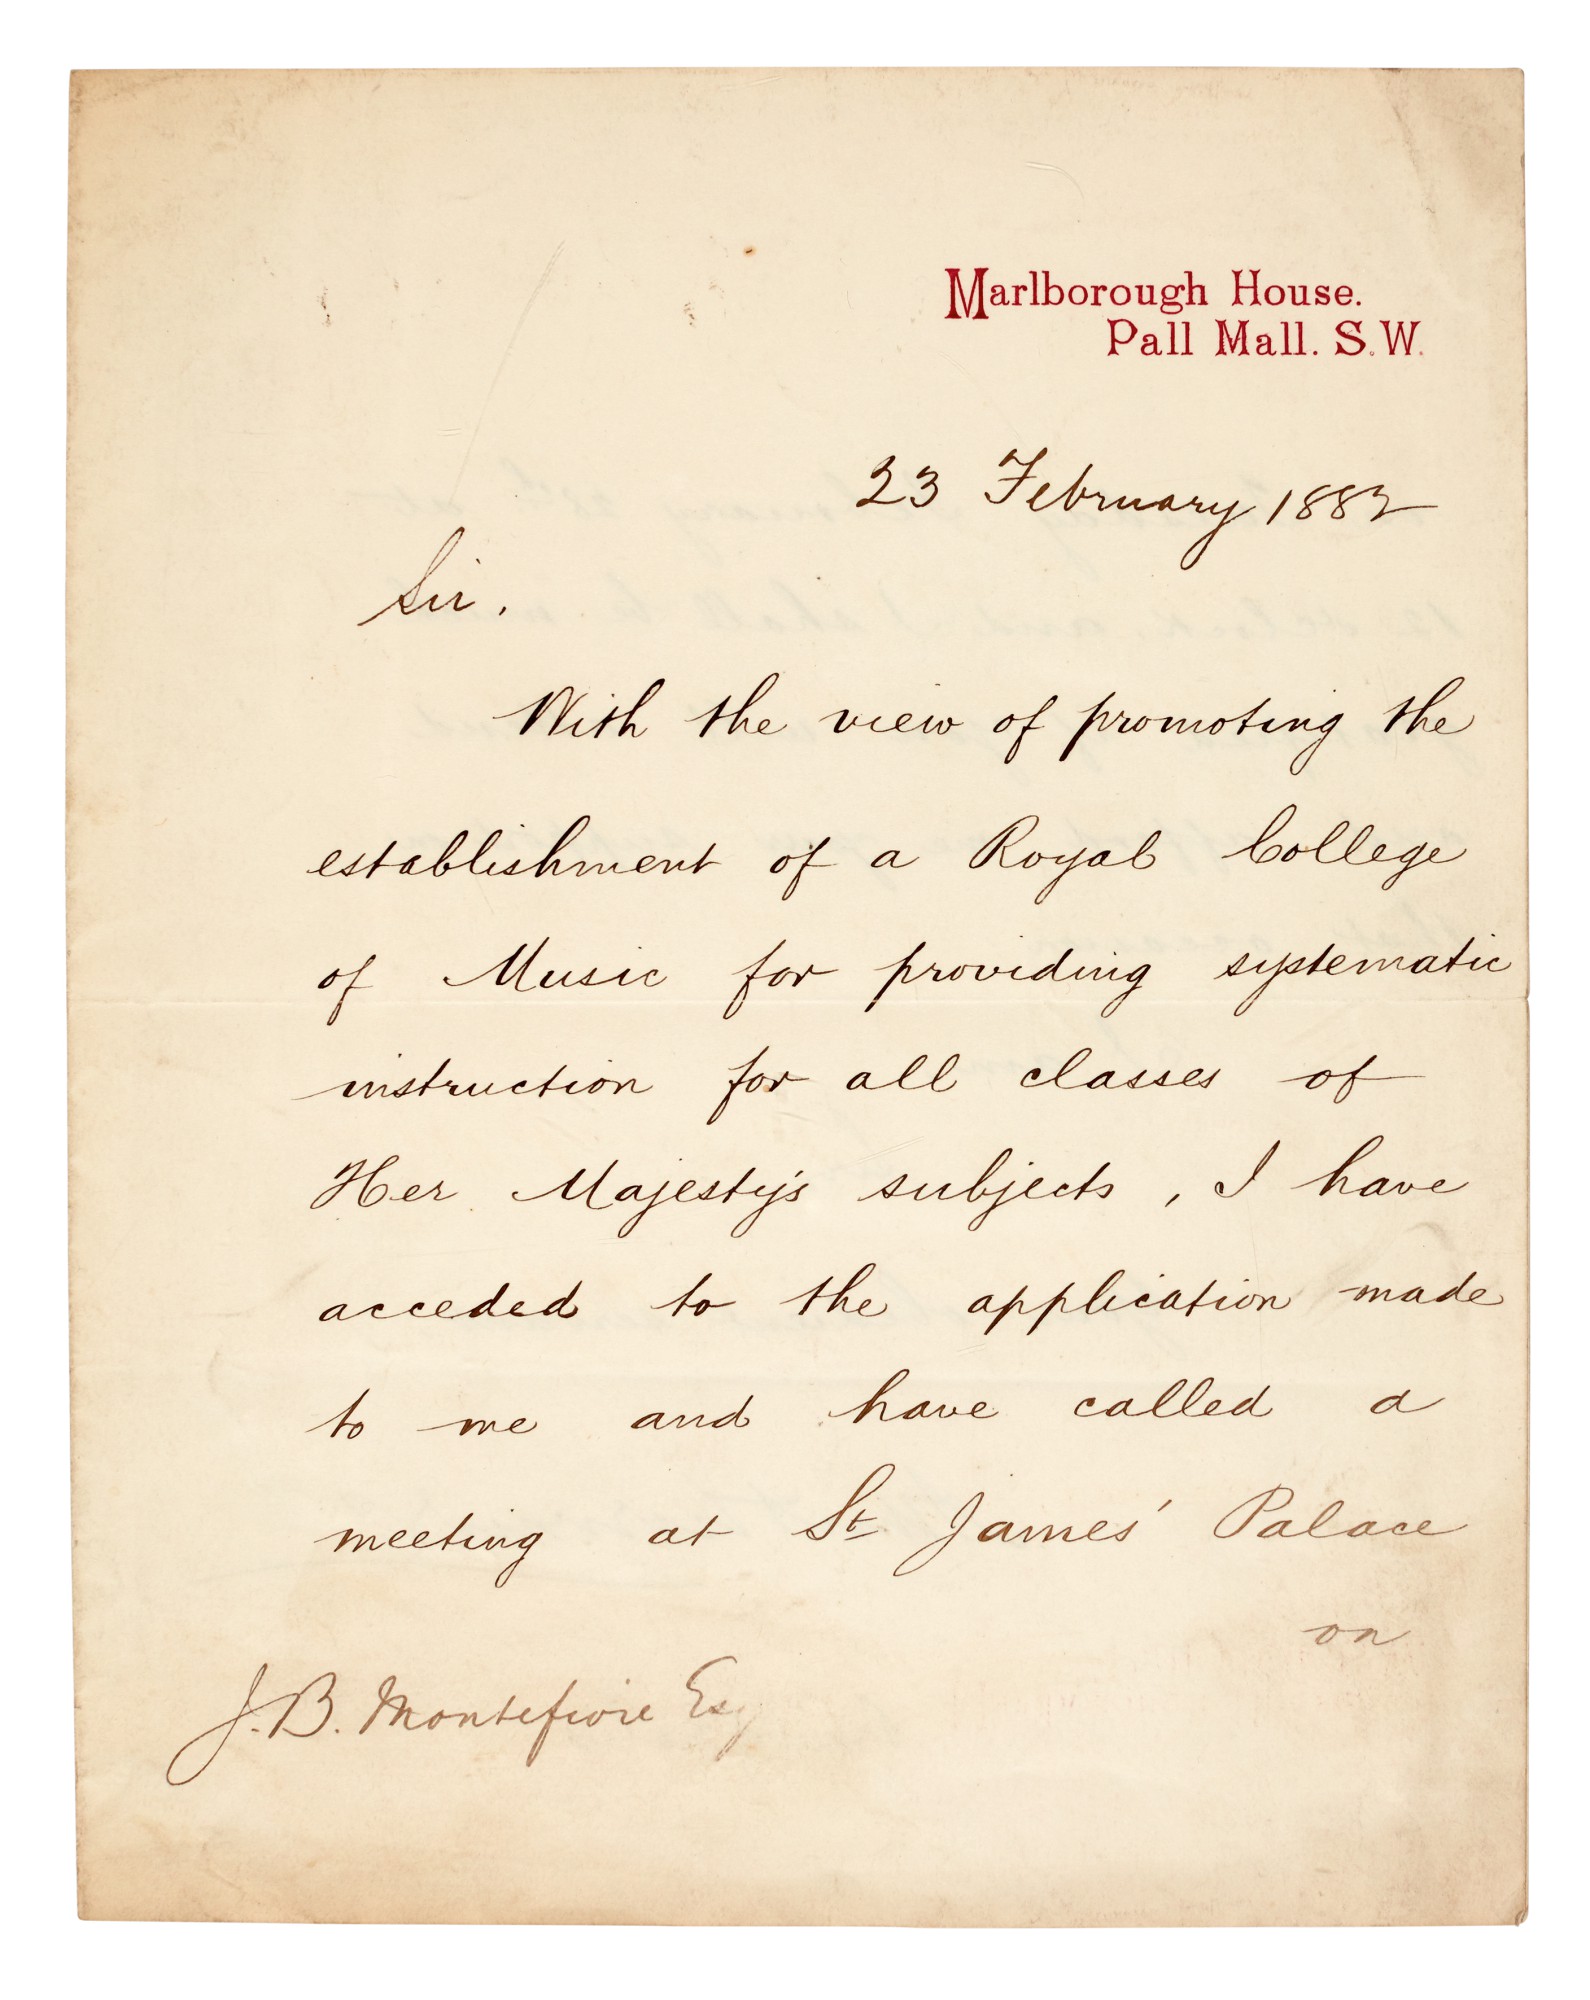 Marlborough House.
Pall Mall. S.W.
23 February 1882
Sir,
With the view of promoting the
establishment of a Royal College
of Music for providing systematic
instruction for all classes of
Her Majesty's subjects, I have
acceded to the application made
to me and have called a
meeting at St. James' Palace
on
J. B. Montefiore Esq